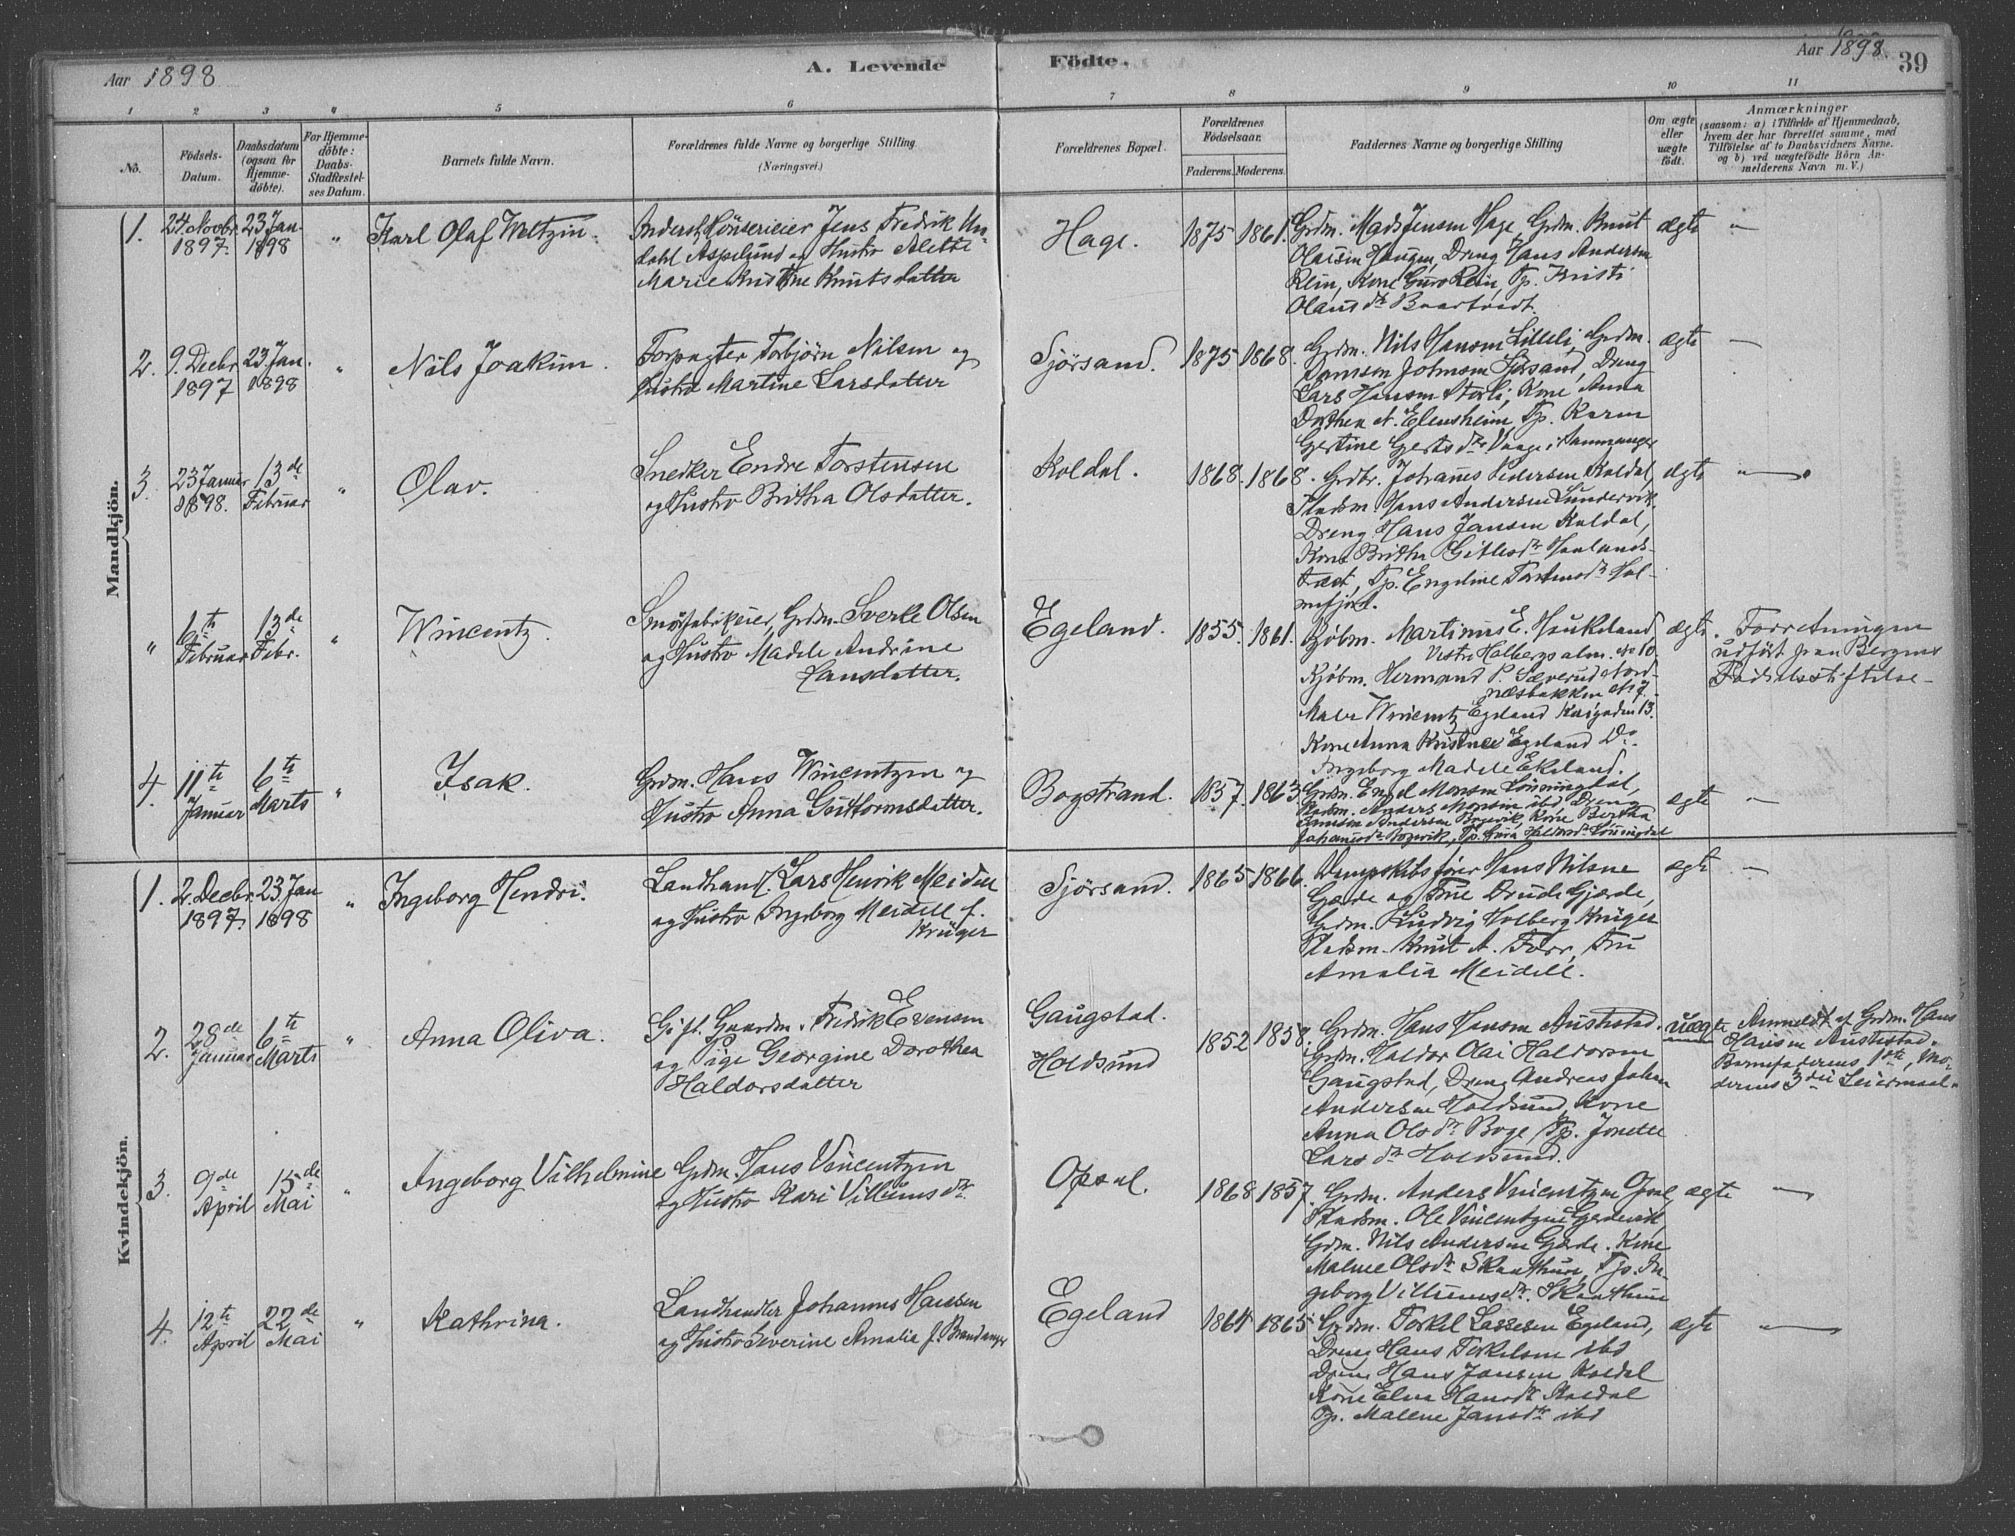 Aar 1898
A. Levende
Födte.
Aar 1898.
39
1 2 3 4 5 6 7 8 9 10 11
No.
Födsels-
Datum.
Daabsdatum
(ogsaa for
Hjemme-
döbte).
For Hjemme-
döbte:
Daabs-
Stadfæstel-
ses Datum.
Barnets fulde Navn.
Forældrenes fulde Navne og borgerlige Stilling
(Næringsvei.)
Forældrenes Bopæl.
Forældrenes
Födselsaar.
Faderens. Moderens.
Faddernes Navne og borgerlige Stilling
Om ægte
eller
uægte
födt.
Anmærkninger
(saasom: a) i Tilfælde af Hjemmedaab,
hvem der har forrettet samme, med
Tilföielse af to Daabsvidners Navne.
og b) ved uægtefödte Börn An-
melderens Navn m. V.)
Mandkjön.
1. 24. Novbr. 1897. 23 Jan. 1898 "
Karl Olaf Weltzin.
Jens Fredrik
Aspelund og Hustro Alette
Marie Knutsdatter
Hage.
1875 1861.
Grdm. Mads Jensen Hage, Grdm. Knut
Olaisen Haugen, Dreng Hans Andersen
Rein, Kone Guro Rein, Tp. Kristi
Olaus dr
ægte "
2. 9. Decbr 1897 23 Jan. 1898 "
Nils Joakim.
Forpagter Torbjörn Nilsen og
Hustro Martine Larsdatter
Sjörsand.
1875 1868.
Grdm. Nils Hansen Lilleli, Grdm.
Johnsen Sjörsand, Dreng
Lars Hansen Storli, Kone Anna
Dorthea A. Elensheim, Tp. Karen
Gertine Gertsdr Vaage i Samnanger
ægte —
3. 23 Januar 1898. 13de Februar "
Olav.
Snedker Endre Torstensen
og Hustro Britha Olsdatter.
Koldal.
1868. 1868.
Grdbr. Johannes Pedersen Koldal,
Pladsm. Hans Andersen Lundervik,
Dreng Hans Jansen Koldal,
Kone Britha Gitlesdr Haalands-
træet, Tp. Engeline Torstensdr Hol-
mefjord.
ægte —
" 6te Februar 13de Febr. "
Wincentz.
Smörfabrikeier, Grdm. Sverke Olsen
og Hustro Madele Andrine
Hansdatter.
Egeland.
1855. 1861.
Kjöbm. Martinus E. Haukeland
Vestre Holbergsalm. No 10.
Kjöbm. Hermand P. Sæverud Nord-
næsbakken No 7.
Maler Wincentz Egeland Kaigaden 13.
Kone Anna Kristine Egeland Do.
Ingeborg Madele Ekeland.
ægte.
Forretningen
udfört paa Bergens
Födselsstiftelse.
4. 11te Januar 6te Marts "
Isak.
Grdm. Hans Wincentzen og
Hustro Anna Guttormsdatter.
Bogstrand.
1857. 1863.
Grdm. Engel Monsen Lönningdal,
Pladsm. Anders Monsen ibd Dreng
Andersen Bogevik, Kone Bertha
Johannesdr Bogevik, Tp. Haldorsdr Lönningdal
ægte —
Kvindekjön.
1. 2. Decbr. 1897. 23 Jan 1898 "
Ingeborg Hendri.
Landhandl. Lars Henrik Meidell
og Hustro Ingeborg Meidell f.
Krüger
Sjörsand.
1865 1866.
Dampskibsförer Hans Nilsen
Gjerde og Frue Drude Gjerde,
Grdm. Ludvig Holberg Krüger
Pladsm. Knut A. Forr, Fru
Amalia Meidell.
ægte —
2. 28de Januar 6te Marts "
Anna Oliva.
Gift. Gaardm. Fredrik Evensen
og Pige Georgine Dorothea
Haldorsdatter
Gaugstad.
Holdsund
1852 1858.
Grdm. Hans Hansen Austestad.
Grdm. Haldor Olai Haldorsen
Gaugstad, Dreng Andreas Johan
Andersen Holdsund, Kone
Anna Olsdr Boge, Tp. Jonette
Larsdr Holdsund.
uægte
Anmeldt af Grdm. Hans
Hansen Austestad.
Barnefaderens 1ste, Mo-
derens 3die Leiermaal.
3. 9de April 15de Mai "
Ingeborg Vilhelmine
Grdm. Hans Vincentzen
og Hustro Kari Villumsdr.
Opsal.
1868 1857.
Grdm. Anders Vincentzen
Pladsm. Ole Vincentzen Gjerdevik
Grdm. Nils Andersen Gjerde. Kone
Malene Olsdr Skaathun, Tp. In-
geborg Villumsdr. Skaathun
ægte —
4. 12te April 22de Mai "
Kathrina.
Landhandler Johannes Hansen
og Hustro Severine Amalia f. Brandanger
Egeland
1864 1865
Grdm. Torkel Lassesen Egeland,
Dreng Hans Torkelsen ibd
Dreng Hans Jansen Koldal
Kone Elen Hansdr Koldal
Tp. Malene Jansdr ibd
ægte —